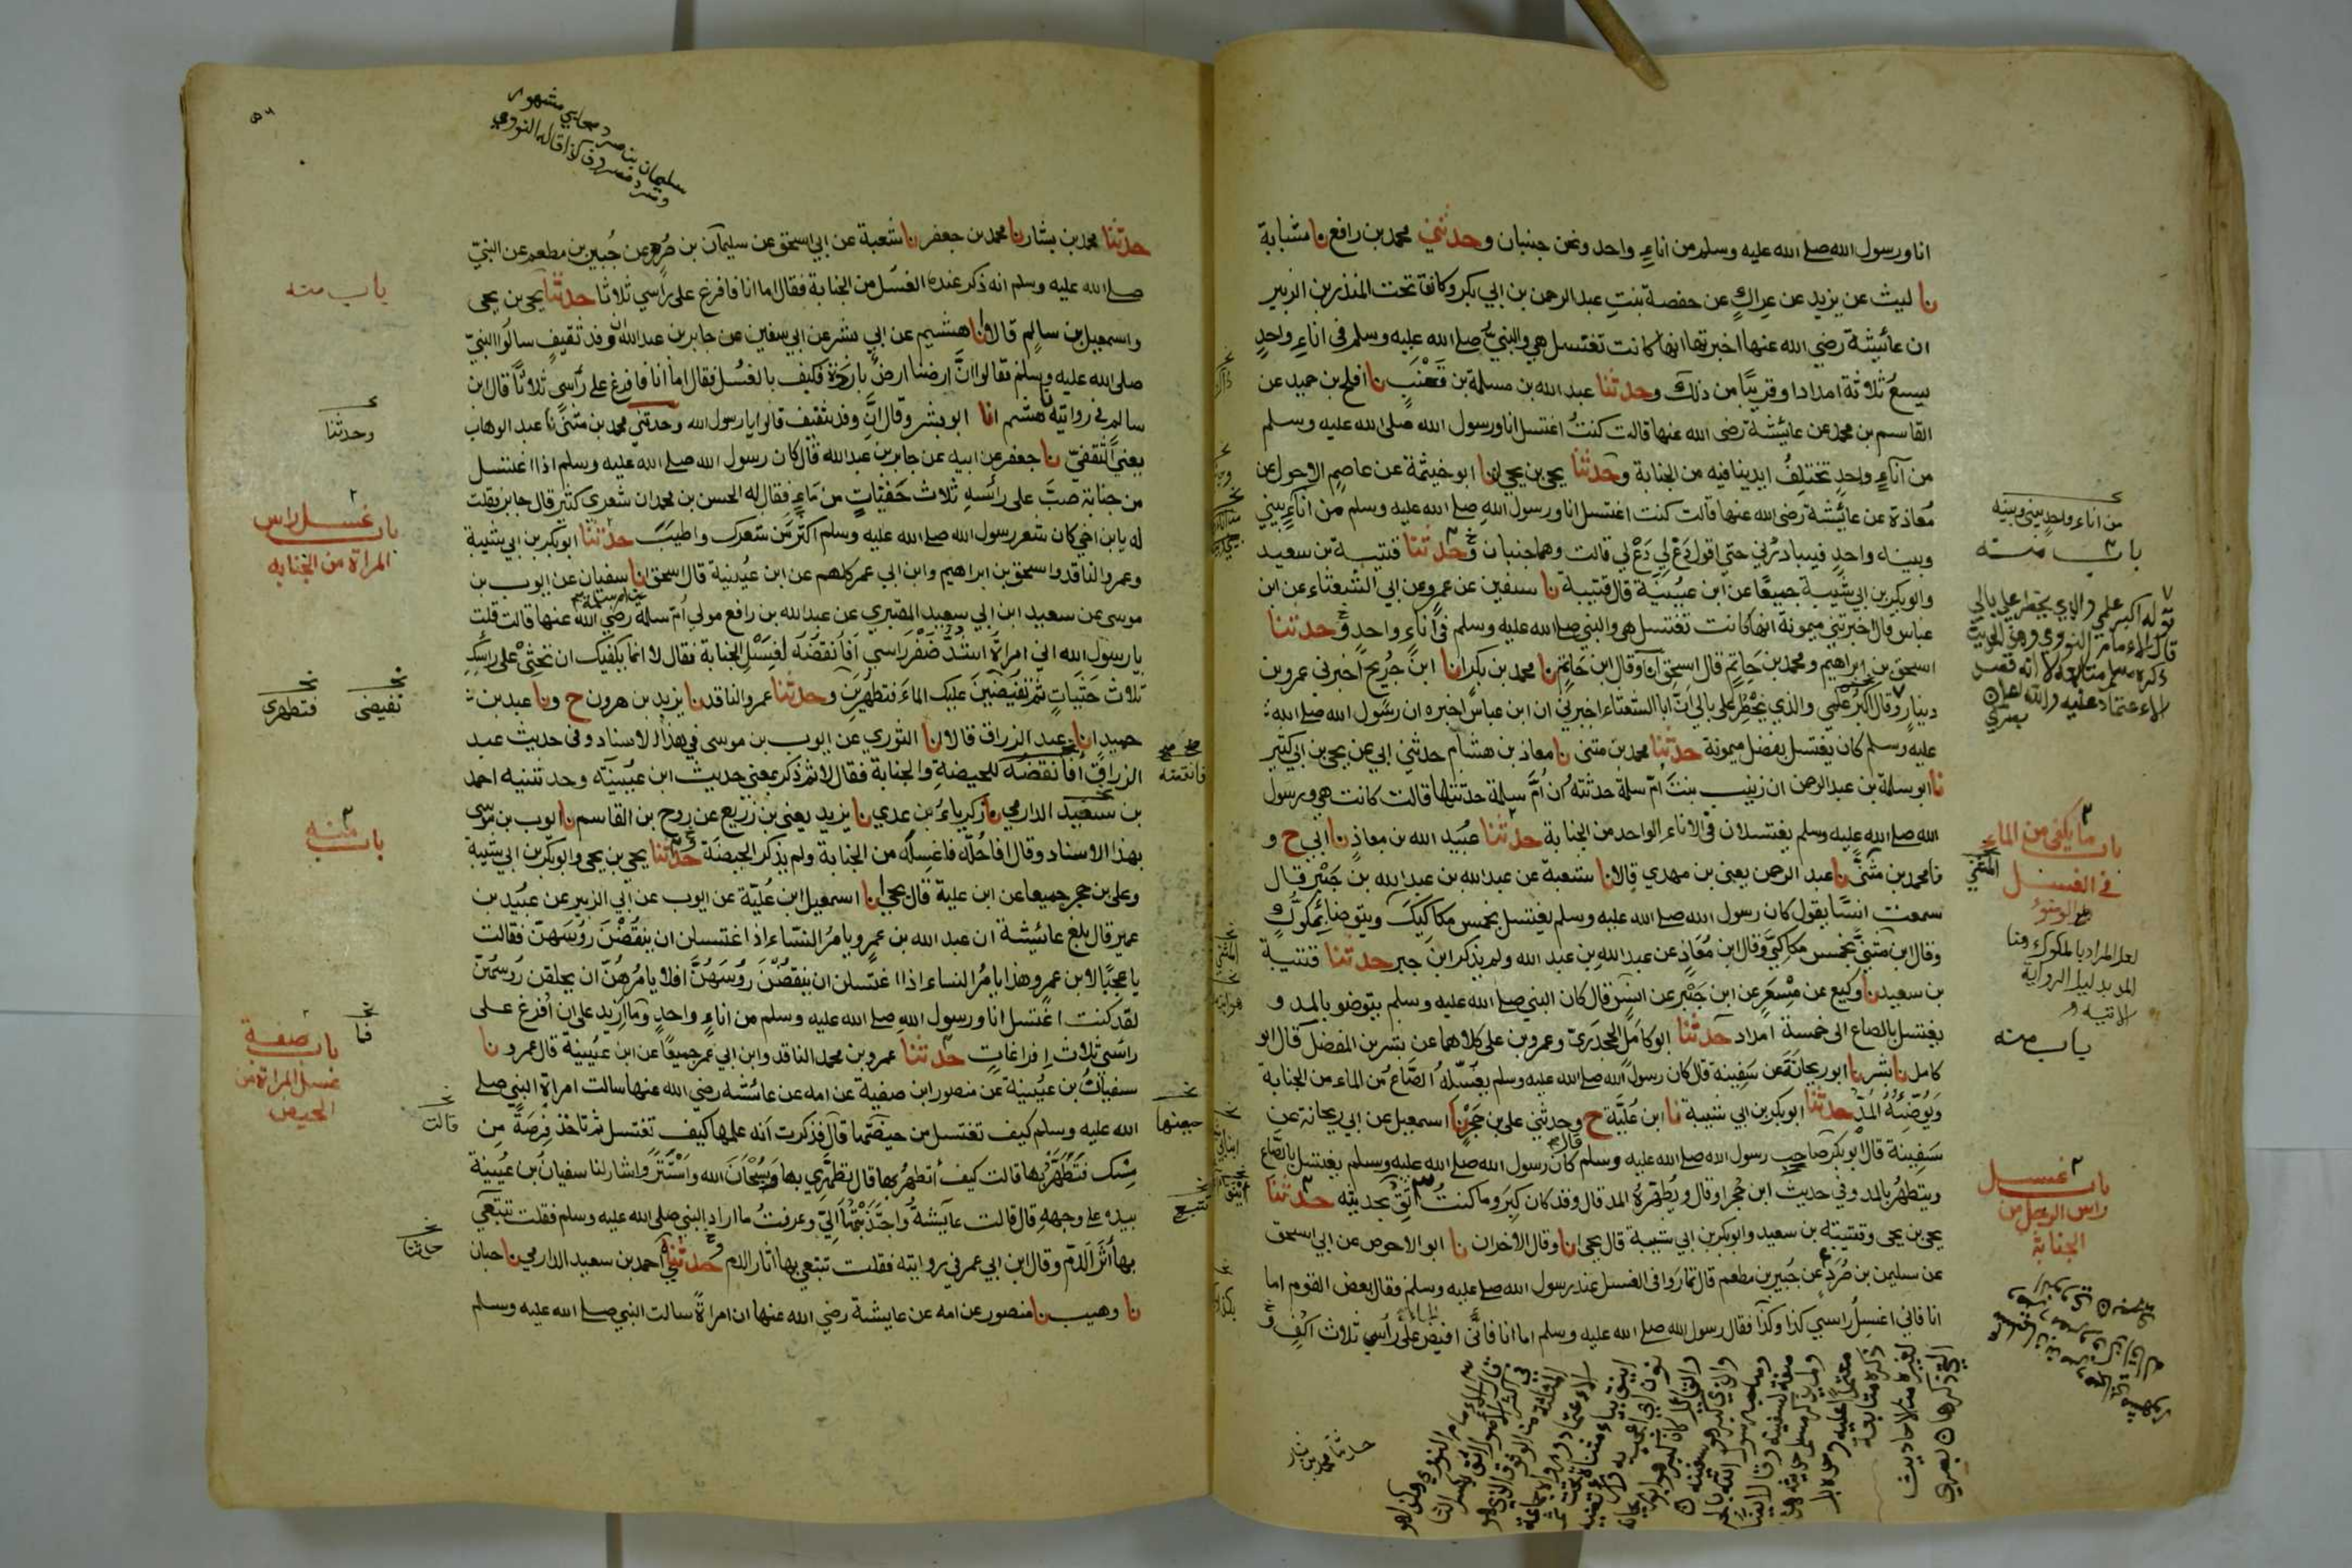 انا ورسول الله صلى الله عليه وسلم من اناءٍ واحد ونحن جنبان وحدثني محمد بن رافع نا شبابة
نا ليث عن يزيد عن عراكٍ عن حفصة بنتِ عبد الرحمن بن ابي بكر وكانت تحت المنذر بن الزبير
ان عائشة رضي الله عنها اخبرتها انها كانت تغتسل هي والنبي صلى الله عليه وسلم في اناءٍ واحدٍ
يسعُ ثلاثة امداد او قريبًا من ذلك وحدثنا عبد الله بن مسلمة بن قَعْنَبٍ نا افلح بن حميد عن
القاسم بن محمد عن عائشة رضي الله عنها قالت كنتُ اغتسل انا ورسول الله صلى الله عليه وسلم
من اناءٍ واحدٍ تختلِفُ ايدينا فيه من الجنابة وحدثنا يحيى بن يحيى انا ابو خيثمة عن عاصم الاحول عن
مُعاذة عن عائشة رضي الله عنها قالت كنت اغتسل انا ورسول الله صلى الله عليه وسلم من اناءٍ بيني
وبينه واحدٍ فيبادرُني حتى اقول دَعْ لي دَعْ لي قالت وهما جنبان وحدثنا قتيبة بن سعيد
وابو بكر بن ابي شيبة جميعًا عن ابن عيينة قال قتيبة نا سفين عن عمرو عن ابي الشعثاء عن ابن
عباس قال اخبرتني ميمونة انها كانت تغتسل هي والنبي صلى الله عليه وسلم في اناءٍ واحدٍ وحدثنا
اسحق بن ابراهيم ومحمد بن حاتم قال اسحق انا وقال ابن حاتمٍ نا محمد بن بكر انا ابن جُرَيج اخبرني عمرو بن
دينارٍ وقال اكبر علمي والذي يَخْطِرُ على بالي انّ ابا الشعثاء اخبرني ان ابن عباس اخبره ان رسول الله صلى الله
عليه وسلم كان يغتسل بفضل ميمونة حدثنا محمد بن مثنى نا معاذ بن هشام حدثني ابي عن يحيى بن ابي كثير
نا ابو سلمة بن عبد الرحمن ان زينب بنتَ امّ سلمة حدثته ان امّ سلمة حدّثتها قالت كانت هي ورسول
الله صلى الله عليه وسلم يغتسلان في الاناء الواحد من الجنابة حدثنا عُبَيد الله بن معاذٍ نا ابي ح و
نا محمد بن مثنّى نا عبد الرحمن يعني بن مهدي قالا نا شعبة عن عبد الله بن عبد الله بن جَبْرٍ قال
سمعت انسًا يقول كان رسول الله صلى الله عليه وسلم يغتسل بخمس مكاكيكَ ويتوضا بمكوكٍ
وقال ابن مثنّى بخمس مكاكيَّ وقال ابن مُعَاذٍ عن عبد الله بن عبد الله ولم يذكر ابن جبر حدثنا قتيبة
بن سعيد نا وكيع عن مِسْعَرٍ عن ابن جَبْرٍ عن انسٍ قال كان النبي صلى الله عليه وسلم يتوضو بالمد و
يغتسل بالصاع الى خمسة امداد حدثنا ابو كامل الجحدريّ وعمرو بن علي كلاهما عن بشر بن المفضل قال ابو
كامل نا بشر نا ابو ريحانة عن سَفينة قال كان رسول الله صلى الله عليه وسلم يغسّله الصّاعُ من الماء من الجنابة
ويُوضِّئُهُ المُدّ حدثنا ابو بكر بن ابي شيبة نا ابن عُلَيَّة ح وحدثني علي بن حُجْرٍ نا اسمعيل عن ابي ريحانة عن
سفينة قال ابو بكر صاحِبِ رسول الله صلى الله عليه وسلم قال كان رسول الله صلى الله عليه وسلم يغتسل بالصّاع
ويتطهرُ بالمد وفي حديث ابن حُجر او قال ويُطهّرهُ المد قال وقد كان كبر وما كنتُ اثِقُ بحديثه حدثنا
يحيى بن يحيى وقتيبة بن سعيد وابو بكر بن ابي شيبة قال يحيى انا وقال الاخران نا ابو الاحوص عن ابي اسحق
عن سليمن بن صُرَدٍ عن جُبَير بن مطعم قال تمارَوا في الغسل عند رسول الله صلى الله عليه وسلم فقال بعض القوم اما
انا فاني اغسِلُ راسي كذا وكذا فقال رسول الله صلى الله عليه وسلم اما انا فانّي افيض على رأسي ثلاث اكُفٍّ و
من اناءٍ واحدٍ بيني وبينه
باب منه
باب ما يكفي من الماء
في الغسل
والوضوء
لعل المراد بالمكوك هنا
المد بدليل الرواية
الاتية
باب منه
باب غسل
راس الرجل من
الجنابة
حدثنا محمد بن بشار
سليمان بن صرد صحابي مشهور
وصرد مصروف كذا قاله النووي
حدثنا محمد بن بشار نا محمد بن جعفر نا شعبة عن ابي اسحق عن سليمان بن صُرَد عن جُبير بن مطعم عن النبيّ
صلى الله عليه وسلم انه ذكر عنده الغسل من الجنابة فقال اما انا فافرغ على راسي ثلاثا حدثنا يحيى بن يحيى
واسمعيل بن سالم قالا انا هشيم عن ابي بشر عن ابي سفين عن جابر بن عبد الله ان وفد ثقيفٍ سالوا النبيّ
صلى الله عليه وسلم فقالوا انَّ ارضنا ارضٌ باردة فكيف بالغسُل فقال اما انا فافرغ على رأسي ثلاثًا قال ابن
سالم في روايته نا هشيم انا ابو بشر وقال انّ وفد ثقيف قالوا يا رسول الله وحدثني محمد بن مثنّى نا عبد الوهاب
يعني الثقفيّ نا جعفر عن ابيه عن جابر بن عبد الله قال كان رسول الله صلى الله عليه وسلم اذا اغتسل
من جنابة صبّ على رأسهِ ثلاث حَفَنَاتٍ من مَاءٍ فقال له الحسن بن محمد ان شعري كثير قال جابر فقلت
له يا بن اخي كان شعر رسول الله صلى الله عليه وسلم اكثر من شعرك واطيبَ حدثنا ابو بكر بن ابي شيبة
وعمرو الناقد واسحق بن ابراهيم وابن ابي عمر كلهم عن ابن عُيينة قال اسحق نا سفيان عن ايوب بن
موسى عن سعيد ابن ابي سعيد المقبري عن عبد الله بن رافع مولى أمّ سلمة رضي الله عنها قالت قلت
يا رسول الله اني امرأة اشدّ ضَفْرَ راسي أفأنقضه لغسْل الجنابة فقال لا انما يكفيك ان تحثي على راسك
ثلاث حَثَياتٍ ثم تفيضين عليك الماء فتطهرين وحدثنا عمرو الناقد نا يزيد بن هرون ح ونا عبد بن
حميد انا عبد الرزاق قالا نا الثوري عن ايوب بن موسى في هذا الاسناد وفي حديث عبد
الرزاق أفأنقضه للحيضة والجنابة فقال لا ثم ذكر بمعنى حديث ابن عيينة وحدثنيه احمد
بن سعيد الدارمي نا زكرياءُ بن عدي نا يزيد يعني بن زُرَيع عن روح بن القاسم نا ايوب بن موسى
بهذا الاسناد وقال أفاحُلّه فاغسِله من الجنابة ولم يذكر الحيضة وحدثنا يحيى بن يحيى وابو بكر بن ابي شيبة
وعلي بن حجر جميعا عن ابن علية قال يحيى انا اسمعيل ابن عُليّة عن ايوب عن ابي الزبير عن عبيد بن
عمير قال بلغ عائشة ان عبد الله بن عمرٍو يامرُ النسّاء اذا اغتسلن ان ينقُضْن رؤسَهنّ فقالت
يا عجبًا لابن عمرٍو هذا يامُر النساء اذا اغتسلن ان ينقُضْنَ رؤسَهُنَّ افلا يامُرهُنّ ان يحلقن رؤسهُنّ
لقد كنت اغتسل انا ورسول الله صلى الله عليه وسلم من اناءٍ واحدٍ وما ازيد على ان أُفرغ على
راسي ثلاث إفراغاتٍ حدثنا عمرو بن محمد الناقد وابن ابي عمر جميعًا عن ابن عيينة قال عمرو نا
سفيانُ بن عُيينة عن منصور ابن صفية عن امه عن عائشة رضي الله عنها سالت امراة النبي صلى
الله عليه وسلم كيف تغتسل من حيضتها قال فذكرت انه علمها كيف تغتسل ثم تاخذ فِرصَةً مِن
مِسْك فتَطَهَّرُ بها قالت كيف أتطهرُ بها قال تطهَّرِي بها وسُبْحَانَ الله واسْتَتَر واشار لنا سفيان بن عُيينة
بيده على وجههِ قال قالت عايشةُ واجْتَذَبْتُها اليّ وعرفتُ ما اراد النبي صلى الله عليه وسلم فقلت تتبّعي
بها أثَرَ الدّم وقال ابن ابي عمر في روايته فقلت تتبعي بها اثار الدم وحدثني احمد بن سعيد الدارمي نا حبان
نا وهيب نا منصور عن امه عن عايشة رضي الله عنها ان امرأةً سالت النبي صلى الله عليه وسلم
باب منه
وحدثنا
باب غسل راس
المراة من الجنابه
تفيضي
فتطهري
باب منه
باب صفة
غسل المراة من
الحيض
قالت
حدثنا